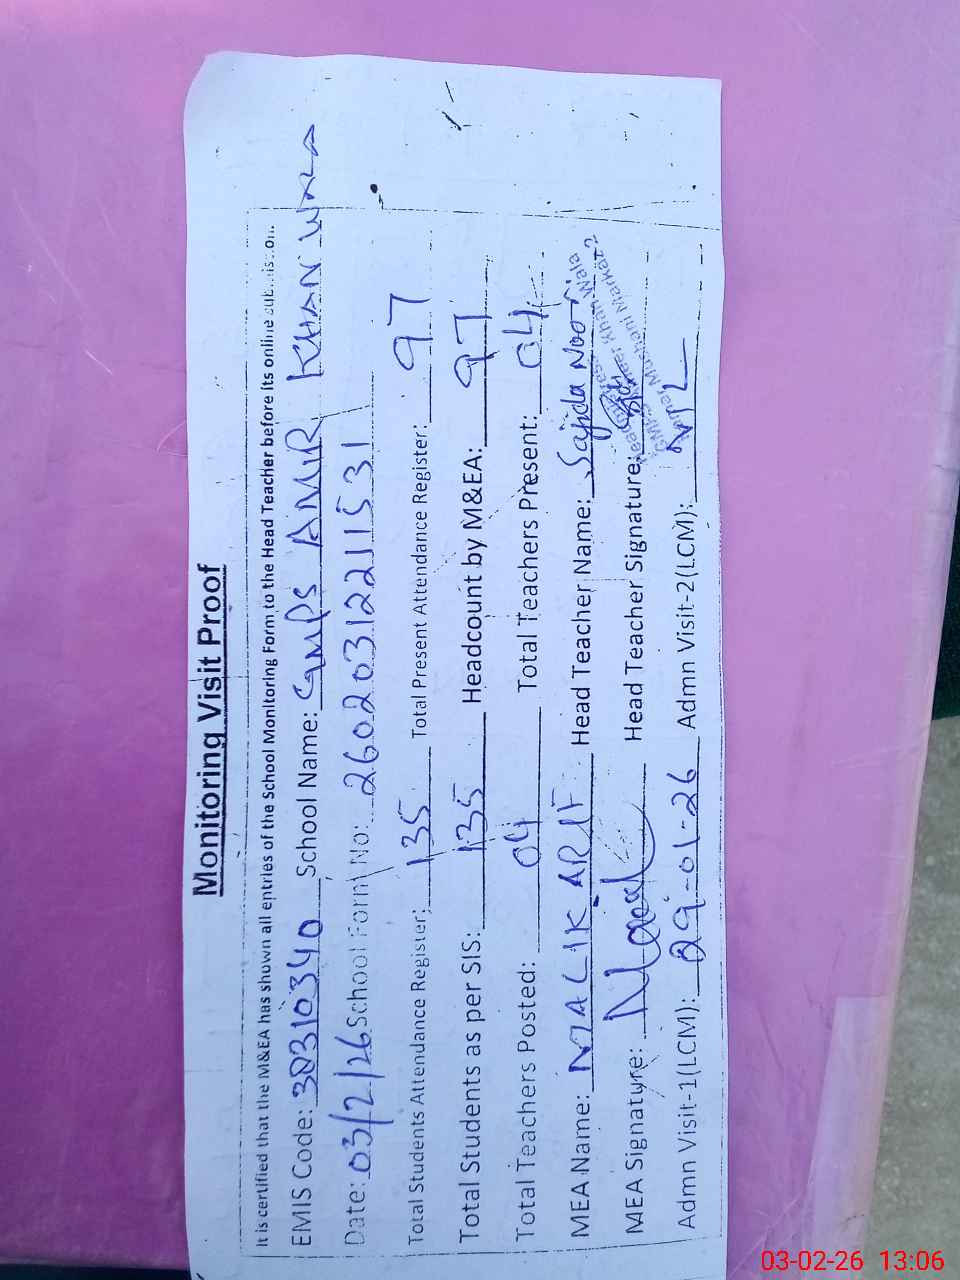 Monitoring Visit Proof
It is certified that the M&EA has shown all entries of the School Monitoring Form to the Head Teacher before its online
EMIS Code: 38310340 School Name: GMPS AMIR KHAN WALA
Date: 03/2/26 School Form No: 260203122211531
Total Students Attendance Register: 135 Total Present Attendance Register: 97
Total Students as per SIS: 135 Headcount by M&EA: 97
Total Teachers Posted: 04 Total Teachers Present: 04
MEA Name: MALIK ARIF Head Teacher Name: Sajida Noor
MEA Signature: Head Teacher Signature:
Headmistress
GMPS Ameer Khan Wala
Mushani Markaz 2
Admn Visit-1(LCM): 29-01-26 Admn Visit-2(LCM): NIL
03-02-26 13:06